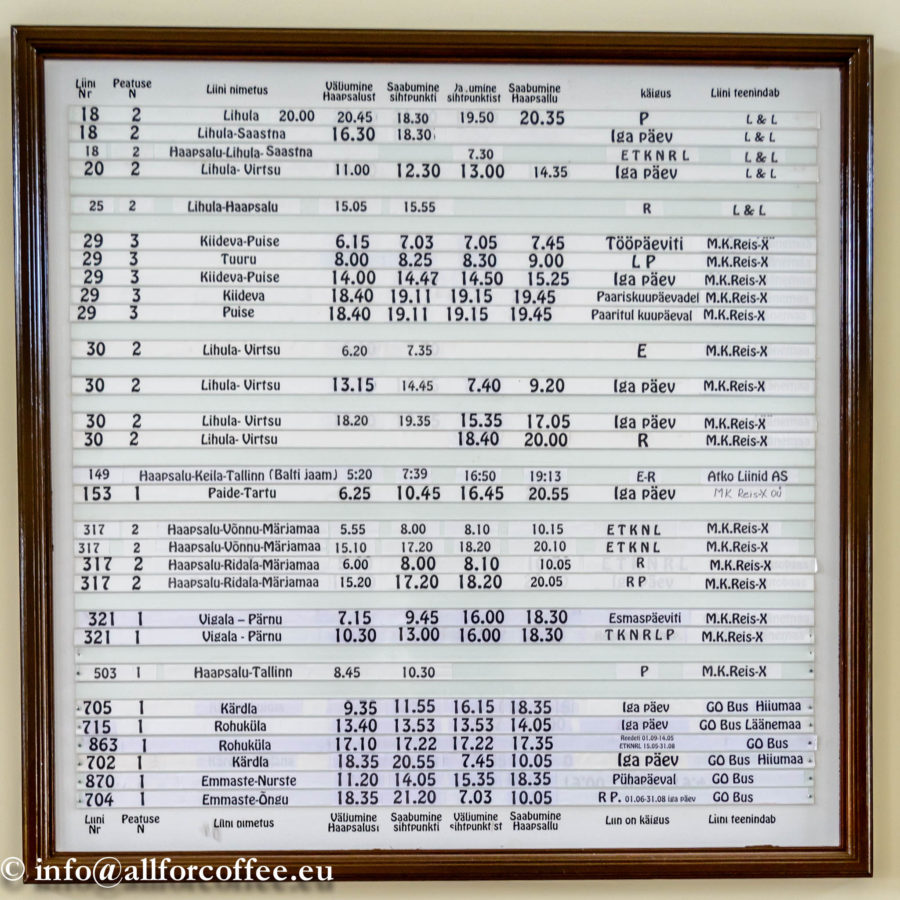 Liini Nr Peatuse N Liini nimetus Väljumine Haapsalust Saabumine sihtpunkti Saabumine Haapsallu käigus Liini teenindab
18 2 Lihula 20.00 20.45 18.30 19.50 20.35 P L & L
18 2 Lihula-Saastna 16.30 18.30 Iga päev L & L
18 2 Haapsalu-Lihula-Saastna 7.30 E T K N R L L & L
20 2 Lihula- Virtsu 11.00 12.30 13.00 14.35 Iga päev L & L
25 2 Lihula-Haapsalu 15.05 15.55 R L & L
29 3 Kiideva-Puise 6.15 7.03 7.05 7.45 Tööpäeviti M.K.Reis-X
29 3 Tuuru 8.00 8.25 8.30 9.00 L P M.K.Reis-X
29 3 Kiideva-Puise 14.00 14.47 14.50 15.25 Iga päev M.K.Reis-X
29 3 Kiideva 18.40 19.11 19.15 19.45 Paariskuupäevadel M.K.Reis-X
29 3 Puise 18.40 19.11 19.15 19.45 Paaritul kuupäeval M.K.Reis-X
30 2 Lihula- Virtsu 6.20 7.35 E M.K.Reis-X
30 2 Lihula- Virtsu 13.15 14.45 7.40 9.20 Iga päev M.K.Reis-X
30 2 Lihula- Virtsu 18.20 19.35 15.35 17.05 Iga päev M.K.Reis-X
30 2 Lihula- Virtsu 18.40 20.00 R M.K.Reis-X
149 Haapsalu-Keila-Tallinn (Balti jaam) 5:20 7:39 16:50 19:13 E-R Atko Liinid AS
153 1 Paide-Tartu 6.25 10.45 16.45 20.55 Iga päev MK Reis-X OÜ
317 2 Haapsalu-Võnnu-Märjamaa 5.55 8.00 8.10 10.15 E T K N L M.K.Reis-X
317 2 Haapsalu-Võnnu-Märjamaa 15.10 17.20 18.20 20.10 E T K N L M.K.Reis-X
317 2 Haapsalu-Ridala-Märjamaa 6.00 8.00 8.10 10.05 R M.K.Reis-X
317 2 Haapsalu-Ridala-Märjamaa 15.20 17.20 18.20 20.05 R P M.K.Reis-X
321 1 Vigala – Pärnu 7.15 9.45 16.00 18.30 Esmaspäeviti M.K.Reis-X
321 1 Vigala - Pärnu 10.30 13.00 16.00 18.30 T K N R L P M.K.Reis-X
503 1 Haapsalu-Tallinn 8.45 10.30 P M.K.Reis-X
705 1 Kärdla 9.35 11.55 16.15 18.35 Iga päev GO Bus Hiiumaa
715 1 Rohuküla 13.40 13.53 13.53 14.05 Iga päev GO Bus Läänemaa
863 1 Rohuküla 17.10 17.22 17.22 17.35 Reedeti 01.09-14.05 ETKNRL 15.05-31.08 GO Bus
702 1 Kärdla 18.35 20.55 7.45 10.05 Iga päev GO Bus Hiiumaa
870 1 Emmaste-Nurste 11.20 14.05 15.35 18.35 Pühapäeval GO Bus
704 1 Emmaste-Õngu 18.35 21.20 7.03 10.05 R P. 01.06-31.08 iga päev GO Bus
Liini Nr Peatuse N Liini nimetus Väljumine Haapsalust Saabumine sihtpunkti Väljumine sihtpunktist Saabumine Haapsallu Liin on käigus Liini teenindab
© info@allforcoffee.eu